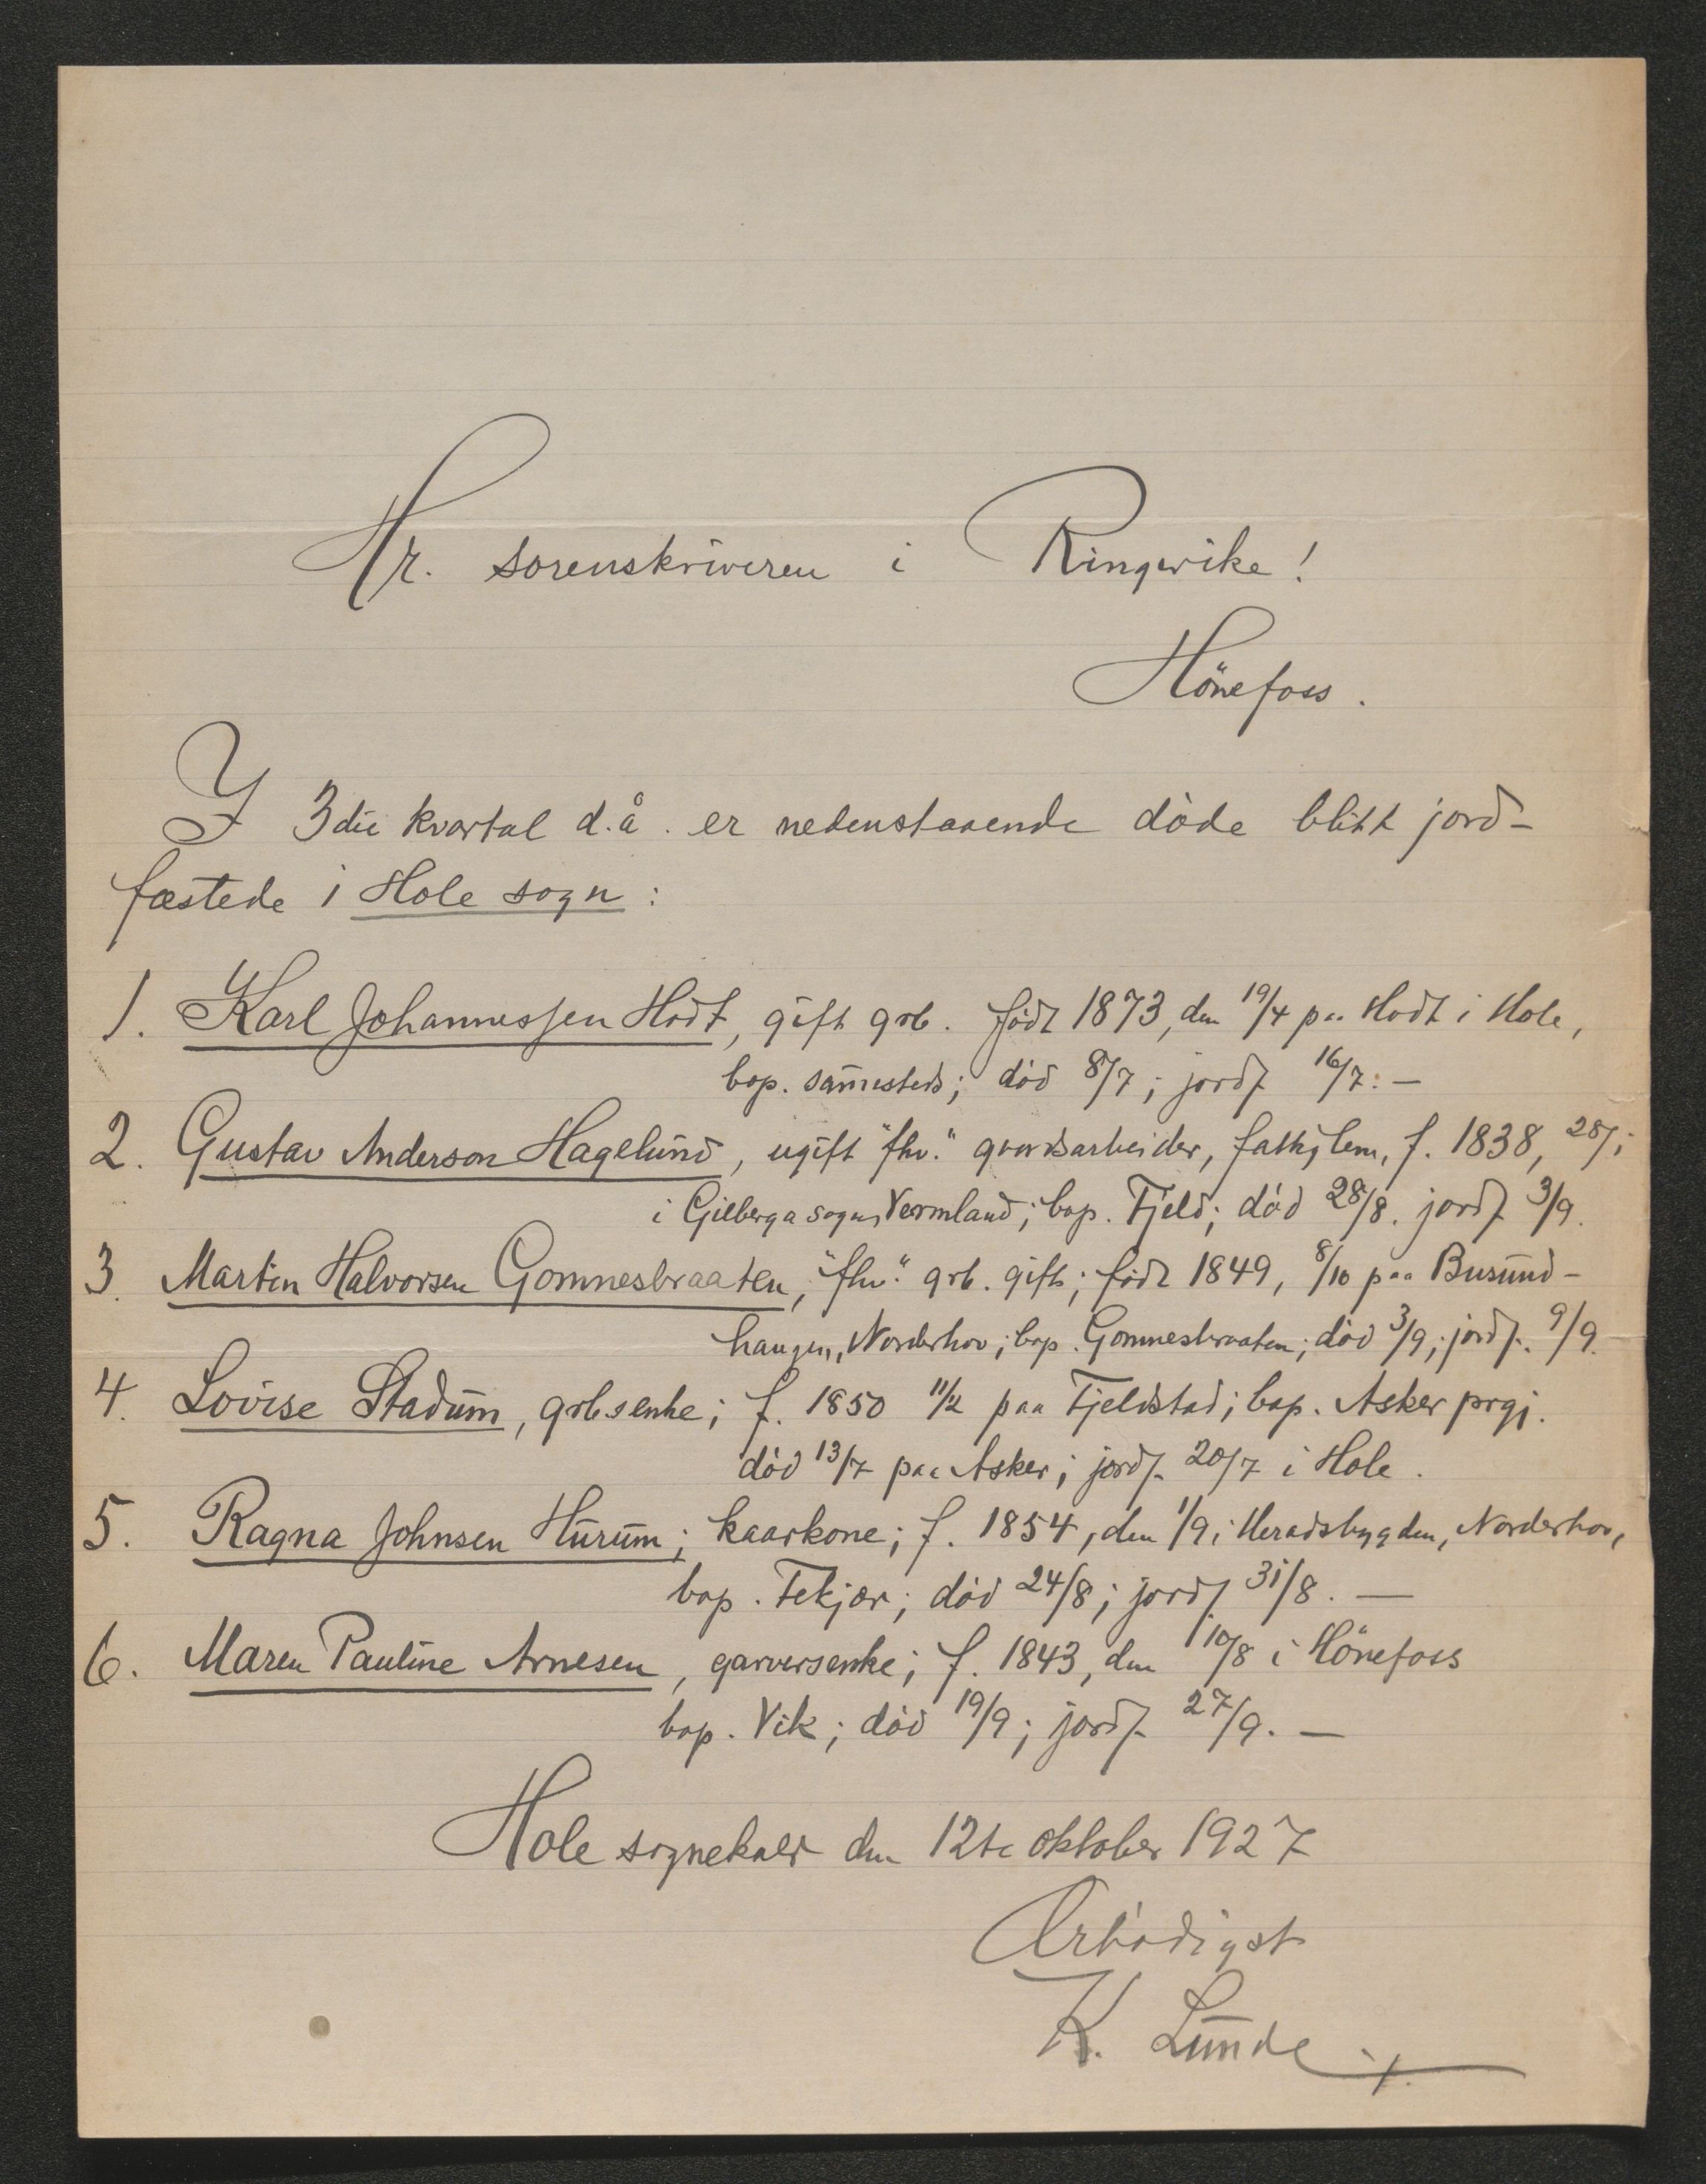 Hr. sorenskriveren i Ringerike!
Hönefoss.
I 3die kvartal d.å. er nedenstaaende döde blitt jord-
fæstede i Hole sogn:
1. Karl Johannessen Hodt, gift grb. født 1873, den 19/4 paa Hodt i Hole,
bop. sammesteds; död 8/7; jordf. 16/7. —
2. Gustav Anderson Hagelund, ugift "fhv." gaardsarbeider, fattiglem, f. 1838, 28/1
i Gjilberga sogn, Vermland; bop. Fjeld; död 28/8. jordf. 3/9.
3. Martin Halvorsen Gomnesbraaten, "fhv." grb. gift; född 1849, 8/10 paa Busund-
haugen, Norderhov; bop. Gomnesbraaten; död 3/9; jordf. 9/9.
4. Lovise Stadum, grbsenke; f. 1850 11/2 paa Fjeldstad; bop. Asker prgj.
död 13/7 paa Asker; jordf. 20/7 i Hole.
5. Ragna Johnsen Hurum; kaarkone; f. 1854, den 1/9 i Heradsbygden, Norderhov,
bop. Fekjær; död 24/8; jordf 31/8. —
6. Maren Pauline Arnesen, garversenke; f. 1843, den 10/8 i Hönefoss
bop. Vik; död 19/9; jordf. 27/9. —
Hole sognekald den 12te oktober 1927
Ærbödigst
K. Lunde